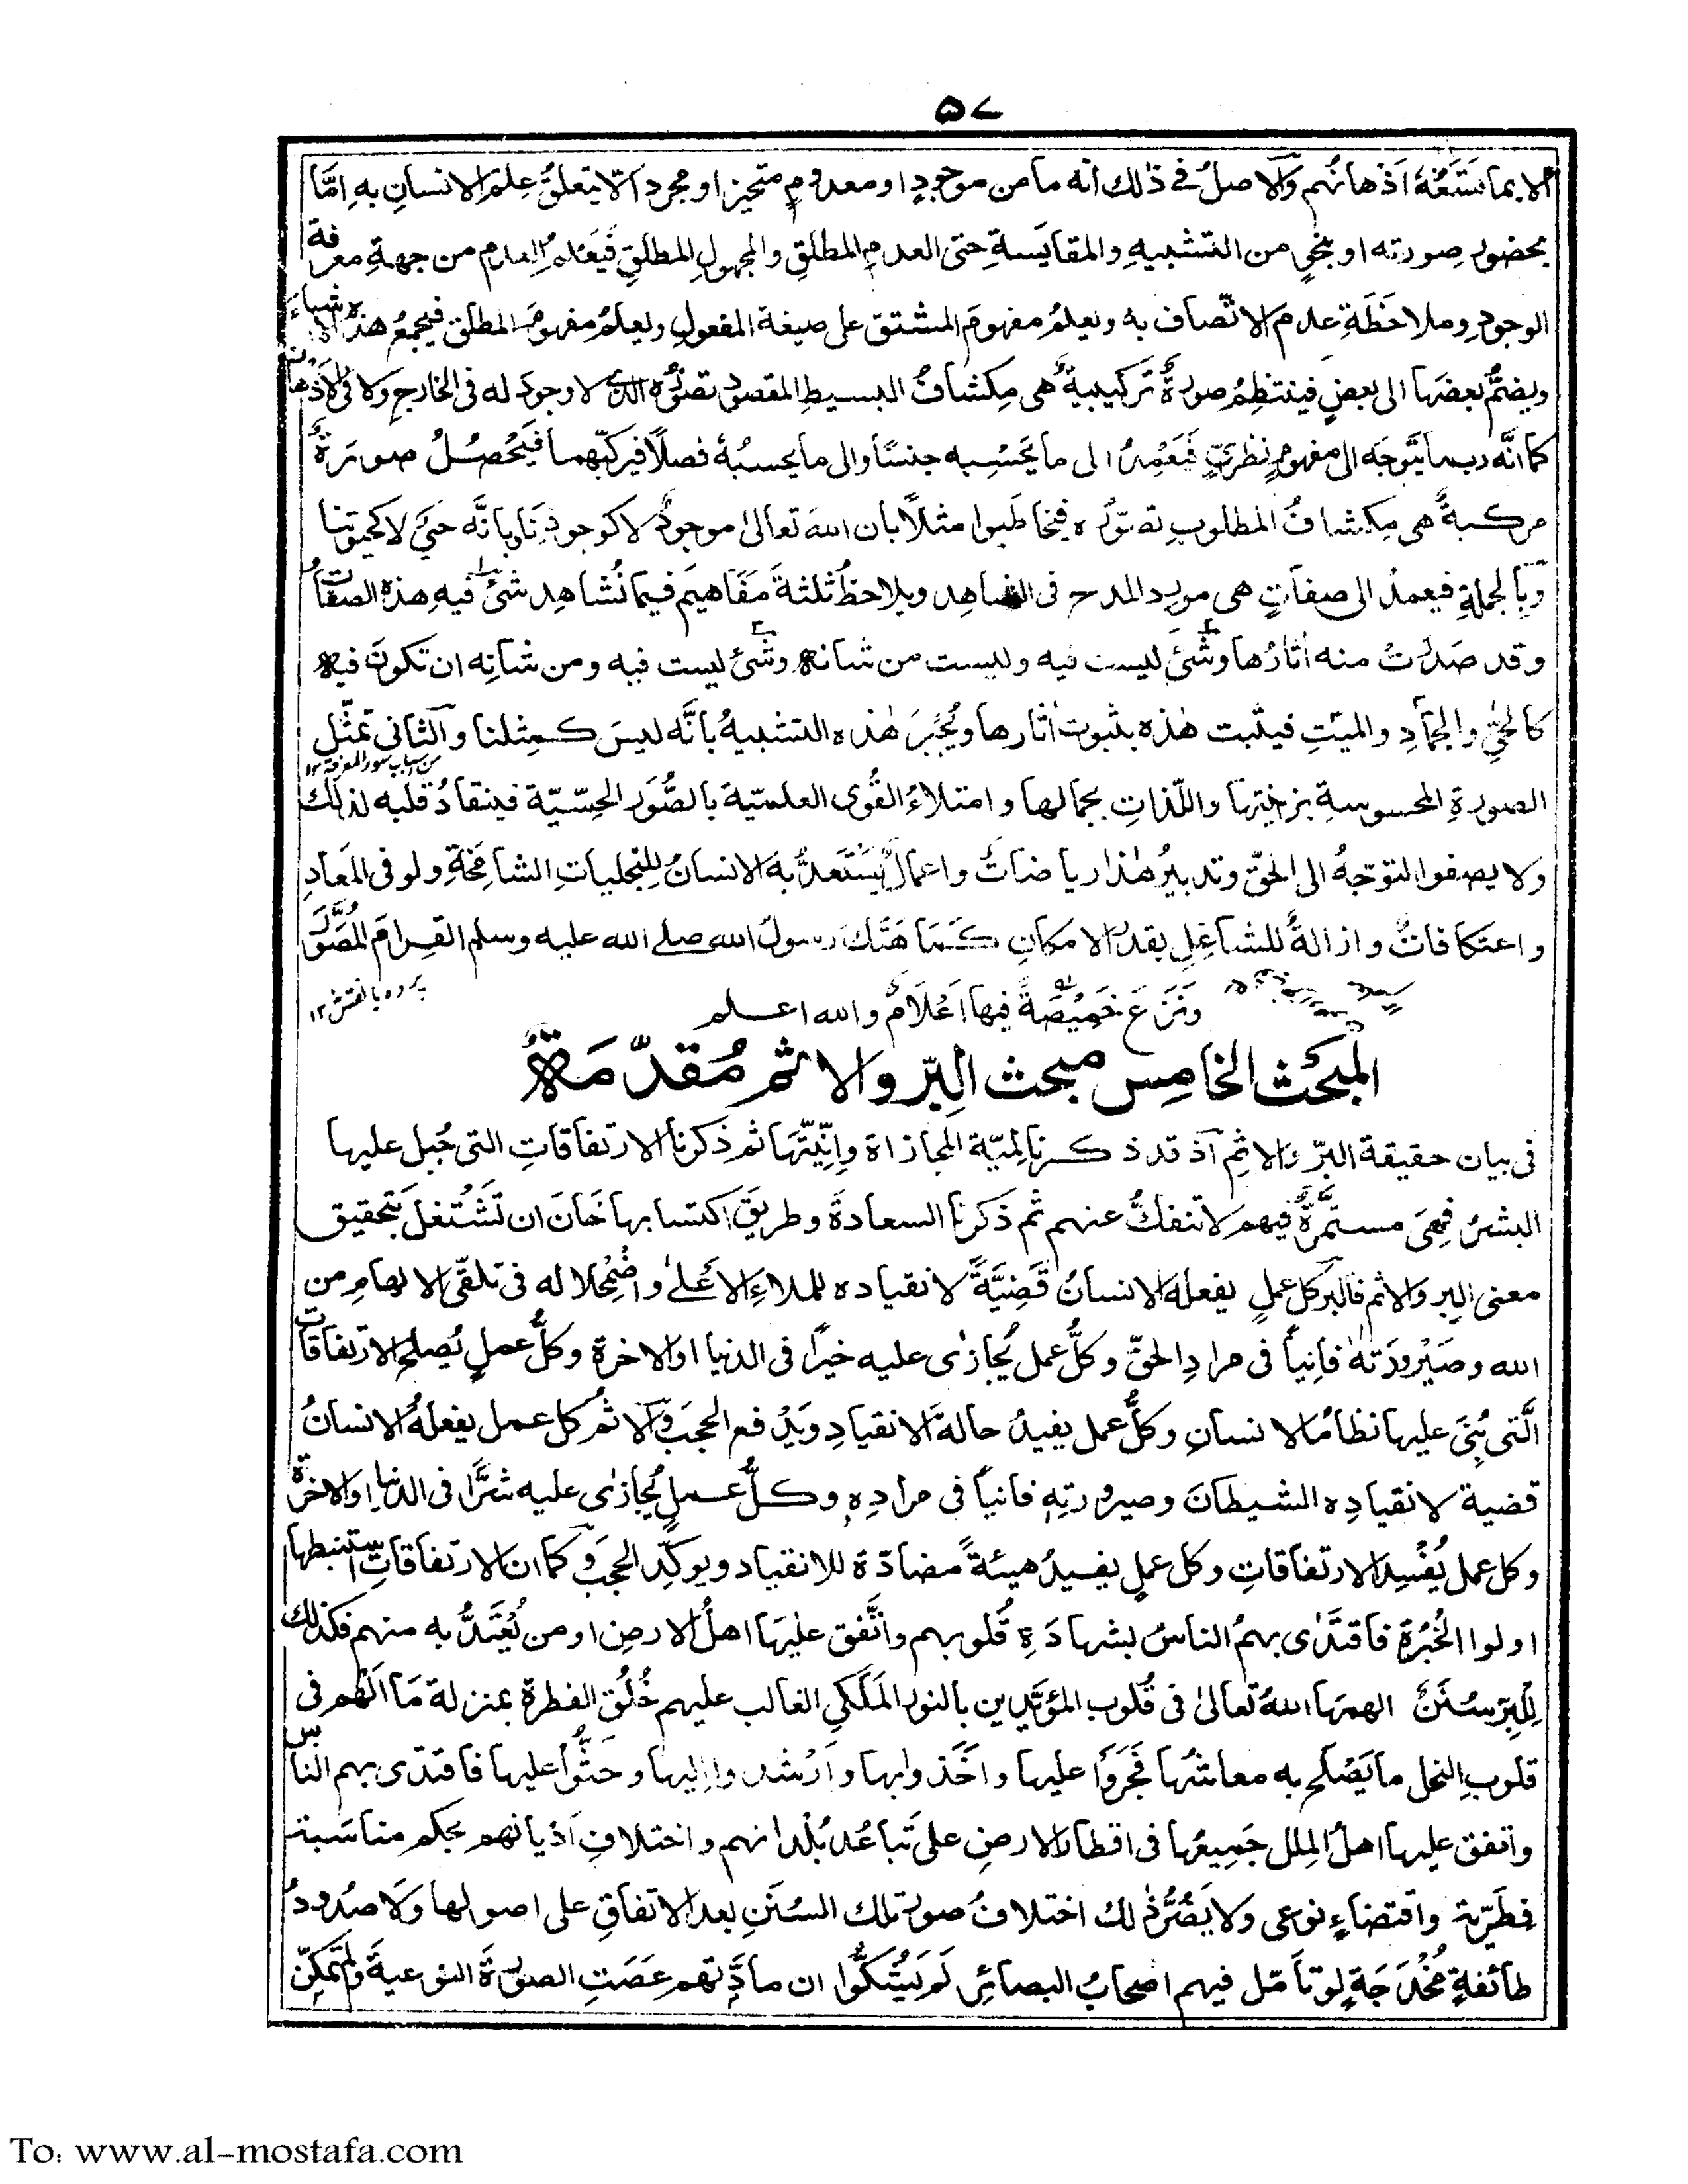 ۵۷
الا بما تسَعُهٗ اَذهانُهم وَالاصلُ فے ذٰلك انه ما من موجودٍ او معدومٍ متحيز او مجرد الّا يتعلقُ علمُ الانسانِ بهٖ اِمَّا
بحضور صورته او بنحوٍ من التشبيهِ والمقايَسةِ حتى العدمِ المطلقِ والمجهولِ المطلقِ فَيَعْلمُ العدم من جهةِ معرفة
الوجودِ وملاحَظَةِ عدم الاتّصاف به ويعلمُ مفهومَ المشتق على صيغة المفعولِ ويعلمُ مفهومَ المطلق فيجمعُ هذه الاشياءَ
ويضمُّ بعضَها الى بعضٍ فينتظِمُ صورةٌ تركيبيةٌ هى مِكشافُ البسيطِ المقصودِ تصوُّره الذى لا وجودَ له فى الخارج ولا فى الاذهان
كما انَّه ربما يتوجّه الى مفهومٍ نظرىٍّ فَيَعْمِدُ الى ما يَحْسِبه جنسًا والى ما يحسبُهٗ فصلًا فيركّبهما فيَحْصُلُ صورةٌ
مركبةٌ هى مِكشافُ المطلوبِ تصوّره فيخاطَبوا مثلًا بان اللهَ تعالىٰ موجودٌ لا كوجودِنَا وبانَّه حىٌّ لا كحيوتنا
وَبالجملةِ فيعمدُ الى صفاتٍ هى موردُ المدح فى الشاهِد ويلاحظُ ثلثةَ مَفَاهيمَ فيما نُشاهِد شئٌ فيهِ هذه الصفاتُ
وقد صَدَرَتْ منه اٰثارُها وشئٌ ليست فيه وليست من شانهٖ وشئٌ ليست فيه ومن شانِه ان تكونَ فيهِ
كالحىِّ والجمادِ والميّتِ فيثبت هٰذه بثبوت اٰثارها ويُجْبَرَ هٰذه التشبيهُ بانَّه ليسَ كمِثلنا والثانى تمثّل
من اسباب سوء المعرفة ١٢
الصورةِ المحسوسةِ بزينتِها واللّذاتِ بجمالها وامتلاءُ القُوى العلميّة بالصُّوَرِ الحِسّيّة فينقادُ قلبه لذلك
ولا يصفو التوجّهُ الى الحقّ وتدبيرُ هٰذا رياضاتٌ واعمالٌ يَستَعدُّ بها الانسانُ للتجلياتِ الشامخَةِ ولو فى المَعادِ
واعتكافاتٌ وازالةٌ للشاغِلِ بقدرِ الامكانِ كَمَا هَتَكَ رسولُ الله صلے الله عليه وسلم القِرامَ المُصَوَّرَ
پرده بانقش ١٢
ونَزَعَ خَمِيْصَةً فيها اَعْلَامٌ والله اعلم
المبْحَث الخامِس مبحث البِرّ والاثم مُقدّمَةٌ
فى بيان حقيقة البرّ والاثم اذ قد ذكرنا لِمّيّة المجازاة واِنّيّتَها ثم ذكرنا الارتفاقاتِ التى جُبِل عليها
البشرُ فهِىَ مستمرّةٌ فيهم لا تنفكُّ عنهم ثم ذكرنا السعادةَ وطريقَ اكتسابها حَانَ ان نَشتغلَ بتحقيق
معنى البِر والاثم فالبر كل عملٍ يفعله الانسانُ قَضِيَّةً لانقياده للملاءِ الاعلےٰ واضْمِحلاله فى تلقّى الالهامِ من
الله وصَيْرورَتهٖ فانِياً فى مراد الحقّ وكلُّ عمل يُجازىٰ عليه خيرًا فى الدنيا او الاخرةِ وكلُّ عملٍ يُصلح الارتفاقات
الَّتى بُنِىَ عليها نظامُ الانسانِ وكلُّ عمل يفيدُ حالةَ الانقيادِ ويَدْفع الحجبَ والاثمُ كل عمل يفعلُه الانسانُ
قضية لانقيادِه للشيطانَ وصيرورتِهٖ فانياً فى مرادِهٖ وكلُّ عملٍ يُجازىٰ عليه شرًّا فى الدنيا او الاخرة
وكل عمل يُفْسِدُ الارتفاقاتِ وكل عملٍ يفيدُ هيئةً مضادّة للانقياد ويوكِّد الحجبَ وَكما ان الارتفاقاتِ استنبطها
اولوا الخُبْرةِ فاقتدٰى بهمُ الناسُ بشهادَةِ قُلوبهم واتَّفق عليْها اهلُ الارضِ او من يُعْتَدُّ به منهم فكذلك
لِلبِرّ سُنَنٌ الهمَها اللهُ تعالىٰ فى قُلوب المؤيَّدين بالنور المَلَكى الغالب عليهم خُلُق الفطرة بمنزلة مَا اَلهَم فى
قلوبِ النحل ما يَصْلح به معاشُها فَجَرَوا عليها واَخَذوا بها واَرْشدوا اليها وحَثُّوا عليها فاقتدٰى بهم الناس
واتفق عليها اهلُ المِلل جميعُها فى اقطارِ الارضِ على تَباعُدِ بُلْدانهم واختلافِ اَديانهم بحكم مناسَبة
فِطَرِيّة واقتضاءٍ نوعى ولا يَضُرُّ ذٰلك اختلافُ صورِ تلك السُنَنِ بعد الاتفاقِ على اصولها وَلَا صُدودُ
طائفةٍ مُخْدَجَةٍ لو تأمّل فيهم اصحابُ البصائرِ لَم يَشُكُّوا ان مادَّتَهم عَصَتِ الصورةَ النوعيةَ ولم تمكّن
To: www.al-mostafa.com